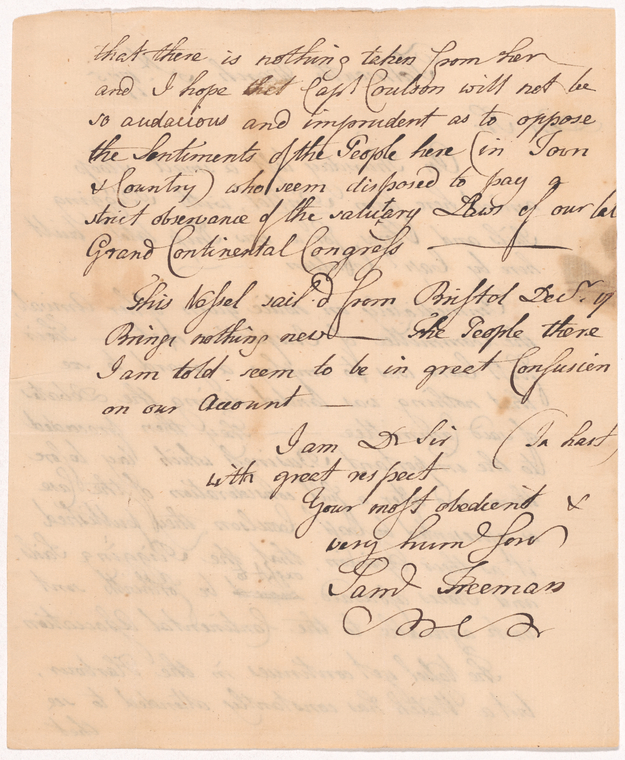 that there is nothing taken from her
and I hope that Capt Coulson will not be
so audacious and imprudent as to oppose
the Sentiments of the People here (in Town
& Country) who seem disposed to pay a
strict observance of the salutary Laws of our
Grand Continental Congress —
This Vessel sail'd from Bristol Decr. 17
Brings nothing new — The People there
I am told seem to be in great Confusion
on our Account —
I am Dr Sir (In hast)
with great respect
Your most obedient &
very hume Serv
Saml Freeman